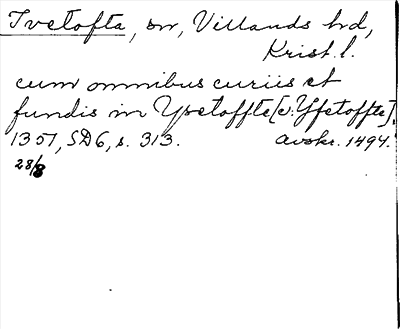 Ivetofta, sn, Villands hd,
Krist. l.
cum omnibus curiis et
fundis in Ypetoffte [v: Yfetoffte].
1351, SD6, s. 313. Avskr. 1494.
28/8